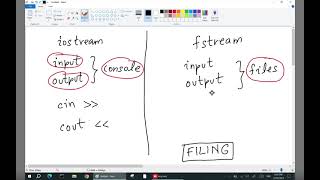 iostream
input
output
console
cin >>
cout <<
fstream
input
output
files
FILING